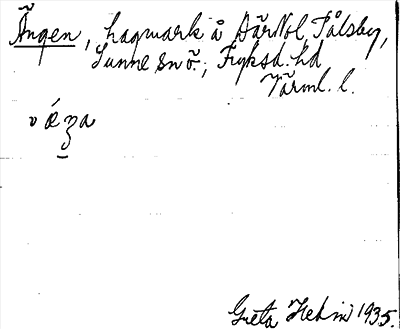 Ängen, hagmark å Där Nol, Pålsby,
Sunne sn ö.; Fryksd. hd
Värml. l.
Greta Hedin 1935.